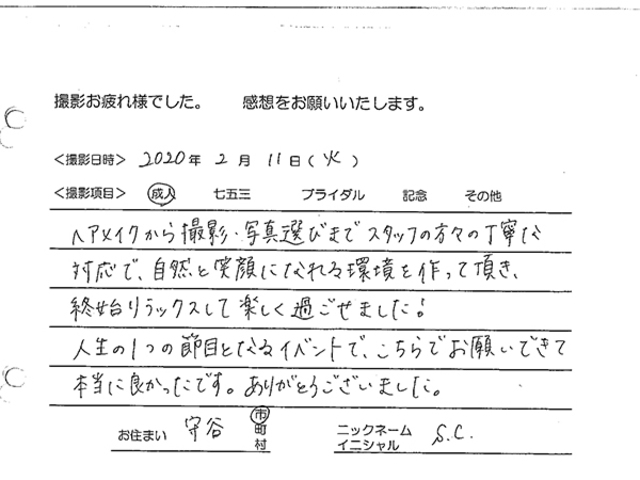 撮影お疲れ様でした。 感想をお願いいたします。
<撮影日時> 2020年 2月 11日(火)
<撮影項目> 成人 七五三 ブライダル 記念 その他
ヘアメイクから撮影・写真選びまでスタッフの方々の丁寧な
対応で、自然と笑顔になれる環境を作って頂き、
終始リラックスして楽しく過ごせました!
人生の1つの節目となるイベントで、こちらでお願いできて
本当に良かったです。ありがとうございました。
お住まい 守谷 市町村 ニックネーム イニシャル S.C.